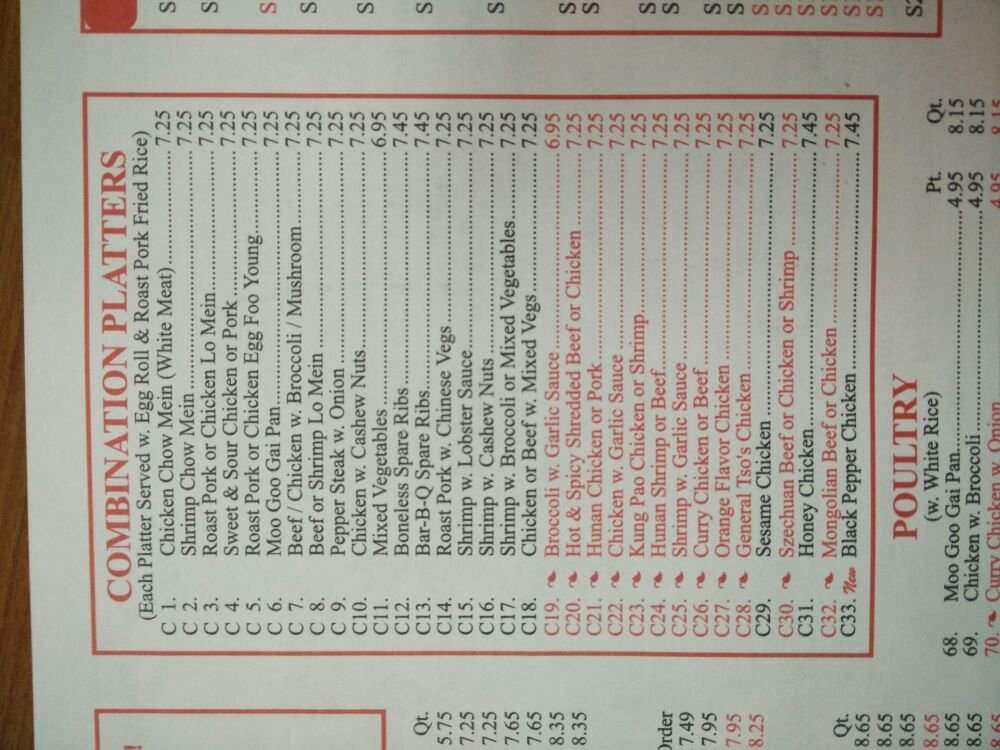 COMBINATION PLATTERS
(Each Platter Served w. Egg Roll & Roast Pork Fried Rice)
C 1. Chicken Chow Mein (White Meat) 7.25
C 2. Shrimp Chow Mein 7.25
C 3. Roast Pork or Chicken Lo Mein 7.25
C 4. Sweet & Sour Chicken or Pork 7.25
C 5. Roast Pork or Chicken Egg Foo Young 7.25
C 6. Moo Goo Gai Pan 7.25
C 7. Beef / Chicken w. Broccoli / Mushroom 7.25
C 8. Beef or Shrimp Lo Mein 7.25
C 9. Pepper Steak w. Onion 7.25
C10. Chicken w. Cashew Nuts 7.25
C11. Mixed Vegetables 6.95
C12. Boneless Spare Ribs 7.45
C13. Bar-B-Q Spare Ribs 7.45
C14. Roast Pork w. Chinese Vegs 7.25
C15. Shrimp w. Lobster Sauce 7.25
C16. Shrimp w. Cashew Nuts 7.25
C17. Shrimp w. Broccoli or Mixed Vegetables 7.25
C18. Chicken or Beef w. Mixed Vegs 7.25
C19. Broccoli w. Garlic Sauce 6.95
C20. Hot & Spicy Shredded Beef or Chicken 7.25
C21. Hunan Chicken or Pork 7.25
C22. Chicken w. Garlic Sauce 7.25
C23. Kung Pao Chicken or Shrimp 7.25
C24. Hunan Shrimp or Beef 7.25
C25. Shrimp w. Garlic Sauce 7.25
C26. Curry Chicken or Beef 7.25
C27. Orange Flavor Chicken 7.25
C28. General Tso's Chicken 7.25
C29. Sesame Chicken 7.25
C30. Szechuan Beef or Chicken or Shrimp 7.25
C31. Honey Chicken 7.45
C32. Mongolian Beef or Chicken 7.25
C33. New Black Pepper Chicken 7.45
POULTRY
(w. White Rice) Pt. Qt.
68. Moo Goo Gai Pan 4.95 8.15
69. Chicken w. Broccoli 4.95 8.15
70. Curry Chicken w. Onion 4.95 8.15
Qt.
5.75
7.25
7.25
7.65
7.65
8.35
8.35
Order
7.49
7.95
7.95
8.25
Qt.
8.65
8.65
8.65
8.65
8.65
8.65
8.65